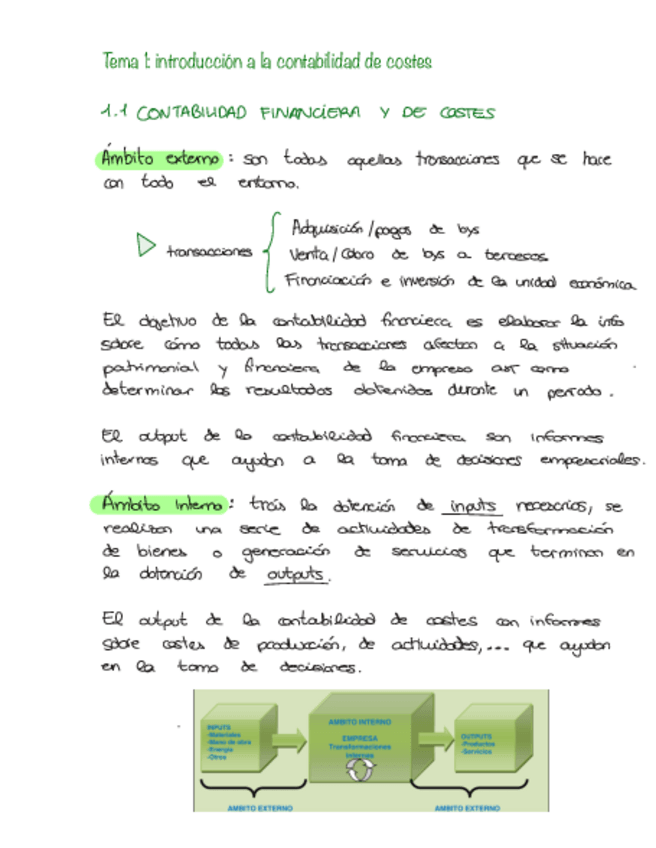 Tema 1: introducción a la contabilidad de costes
1.1 CONTABILIDAD FINANCIERA Y DE COSTES
Ámbito externo: son todas aquellas transacciones que se hace
con todo el entorno.
Adquisición/pagos de bys
transacciones
Venta/Cobro de bys a terceros
Financiación e inversión de la unidad económica
El objetivo de la contabilidad financiera es elaborar la info
sobre cómo todas las transacciones afectan a la situación
patrimonial y financiera de la empresa así como
determinar los resultados obtenidos durante un periodo.
El output de la contabilidad financiera son informes
internos que ayudan a la toma de decisiones empresariales.
Ámbito Interno: trás la obtención de inputs necesarios, se
realizan una serie de actividades de transformación
de bienes o generación de servicios que terminan en
la obtención de outputs.
El output de la contabilidad de costes son informes
sobre costes de producción, de actividades,... que ayudan
en la toma de decisiones.
INPUTS
-Materiales
-Mano de obra
-Energía
-Otros
AMBITO INTERNO
EMPRESA
Transformaciones
internas
OUTPUTS
-Productos
-Servicios
AMBITO EXTERNO
AMBITO EXTERNO